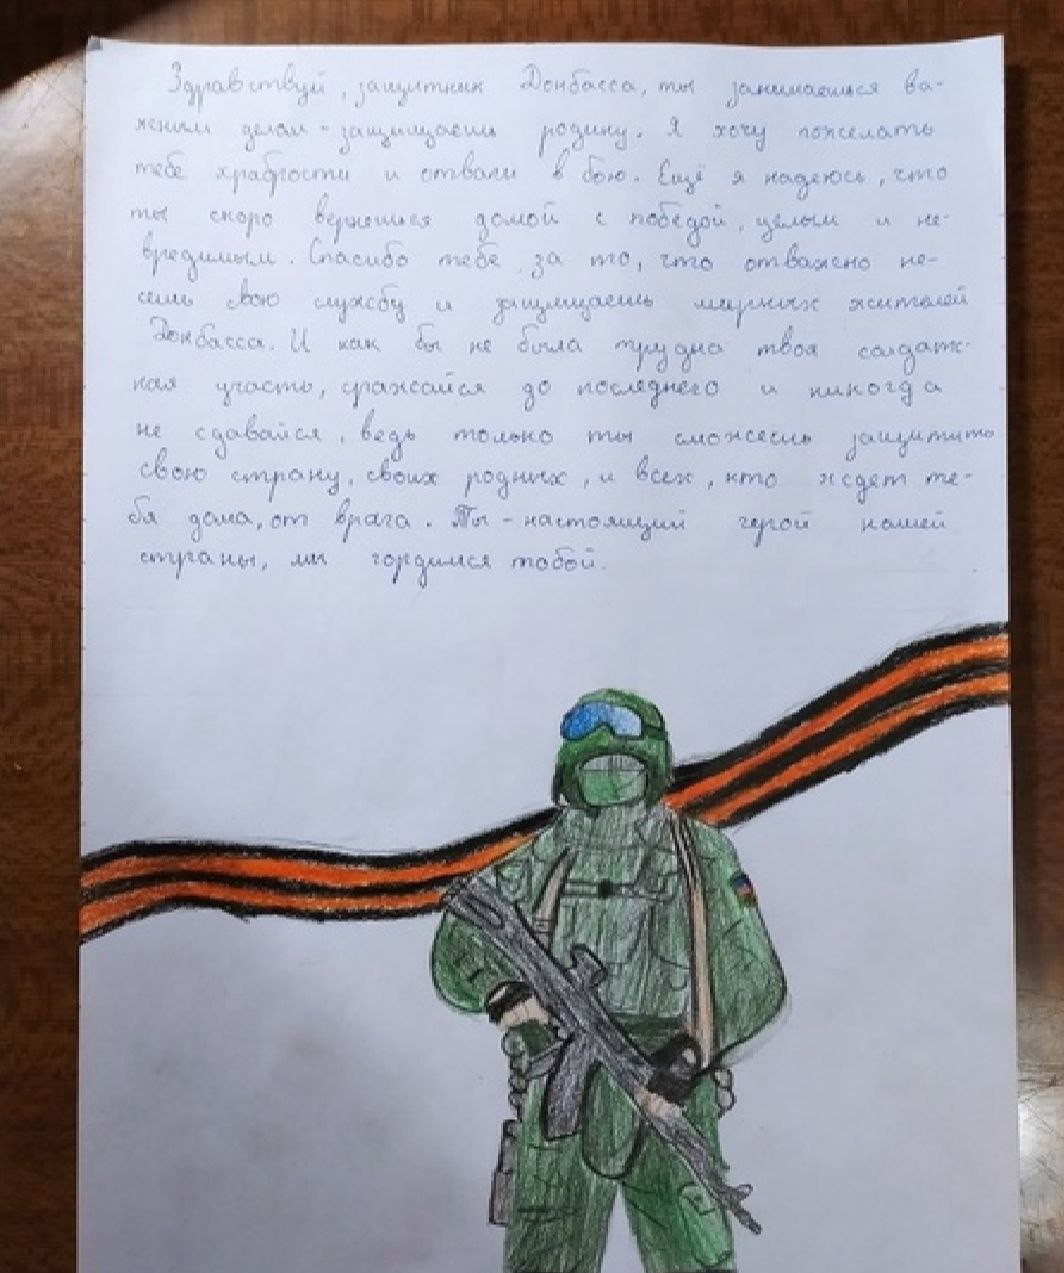 Здравствуй, защитник Донбасса, ты занимаешься ва-
жным делом - защищаешь родину. Я хочу пожелать
тебе храбрости и отваги в бою. Ещё я надеюсь, что
ты скоро вернешься домой с победой, целым и не-
вредимым. Спасибо тебе за то, что отважно не-
сешь свою службу и защищаешь мирных жителей
Донбасса. И как бы не была трудна твоя солдатс-
кая участь, сражайся до последнего и никогда
не сдавайся, ведь только ты сможешь защитить
свою страну, своих родных, и всех, кто ждет те-
бя дома, от врага. Ты - настоящий герой нашей
страны, мы гордимся тобой.